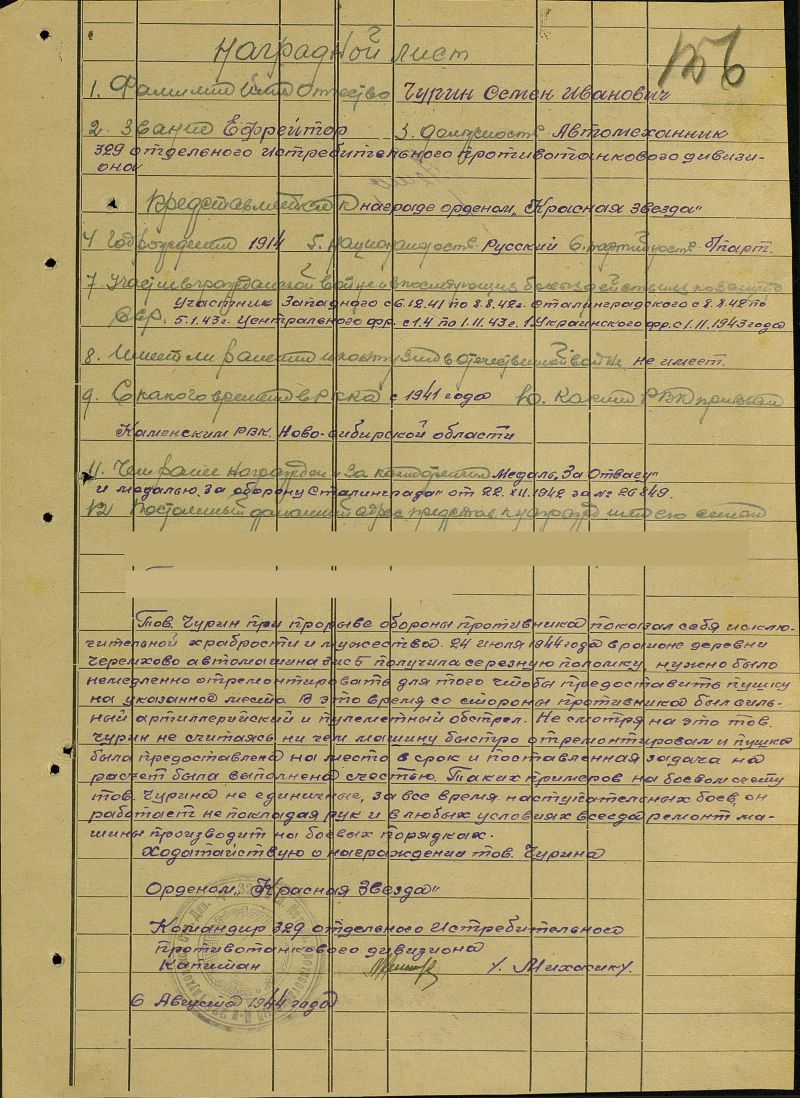 Наградной лист
1. Фамилия Имя Отчество Чурин Семен Иванович
2. Звание Ефрейтор 3. должность Автомеханник
329 отдельного истребительного противотанкового дивизи-
она
Представляется к награде орденом „Красная Звезда"
4 Год рождения 1914 5. национальность Русский 6. партийность б/парт.
7. Участие в гражданской войне и в последующих боевых действиях по защите
СССР. Участник Западного с 6.12.41 по 8.8.42г. Сталинградского с 8.8.42 по
5.1.43г. Центрального фр. с 1.4 по 1.11.43г. 1 Украинского фр. с 1.11.1943 года
8. Имеет ли ранения и контузии в отечественной войне не имеет.
9. С какого времени в РККА с 1941 года 10. Каким РВК призван
Каменским РВК. Ново-сибирской области
11. Чем ранее награжден и за какие отличия Медаль „За Отвагу"
и медалью „За оборону Сталинграда" от 22.XII.1942 за № 26849.
12 Постоянный домашний адрес представ. к награде и его семьи
Тов. Чурин при прорыве обороны противника показал себя исклю-
чительной храбрости и мужества. 24 июля 1944 года в районе деревни
Черемхово автомашина Зис 5 получила серезную поломку, нужно было
немедленно отремонтировать для того чтобы предоставить пушку
на указанное место. В это время со стороны противника был силь-
ный артиллерийский и пулеметный обстрел. Не смотря на это тов.
Чурин не считаясь ни чем машину быстро отремонтировал и пушка
была предоставлена на место в срок и поставленная задача на
расчет была выполнена с честью. Таких примеров на боевом счету
тов. Чурина не единичные, за все время наступательных боев, он
работает не покладая рук и в любых условиях всегда ремонт ма-
шины производит на боевых порядках.
Ходатайствую о награждении тов. Чурина
Орденом „Красная Звезда"
Командир 329 отдельного Истребительного
противотанкового дивизиона
Капитан У. Михасику.
6 Августа 1944 года